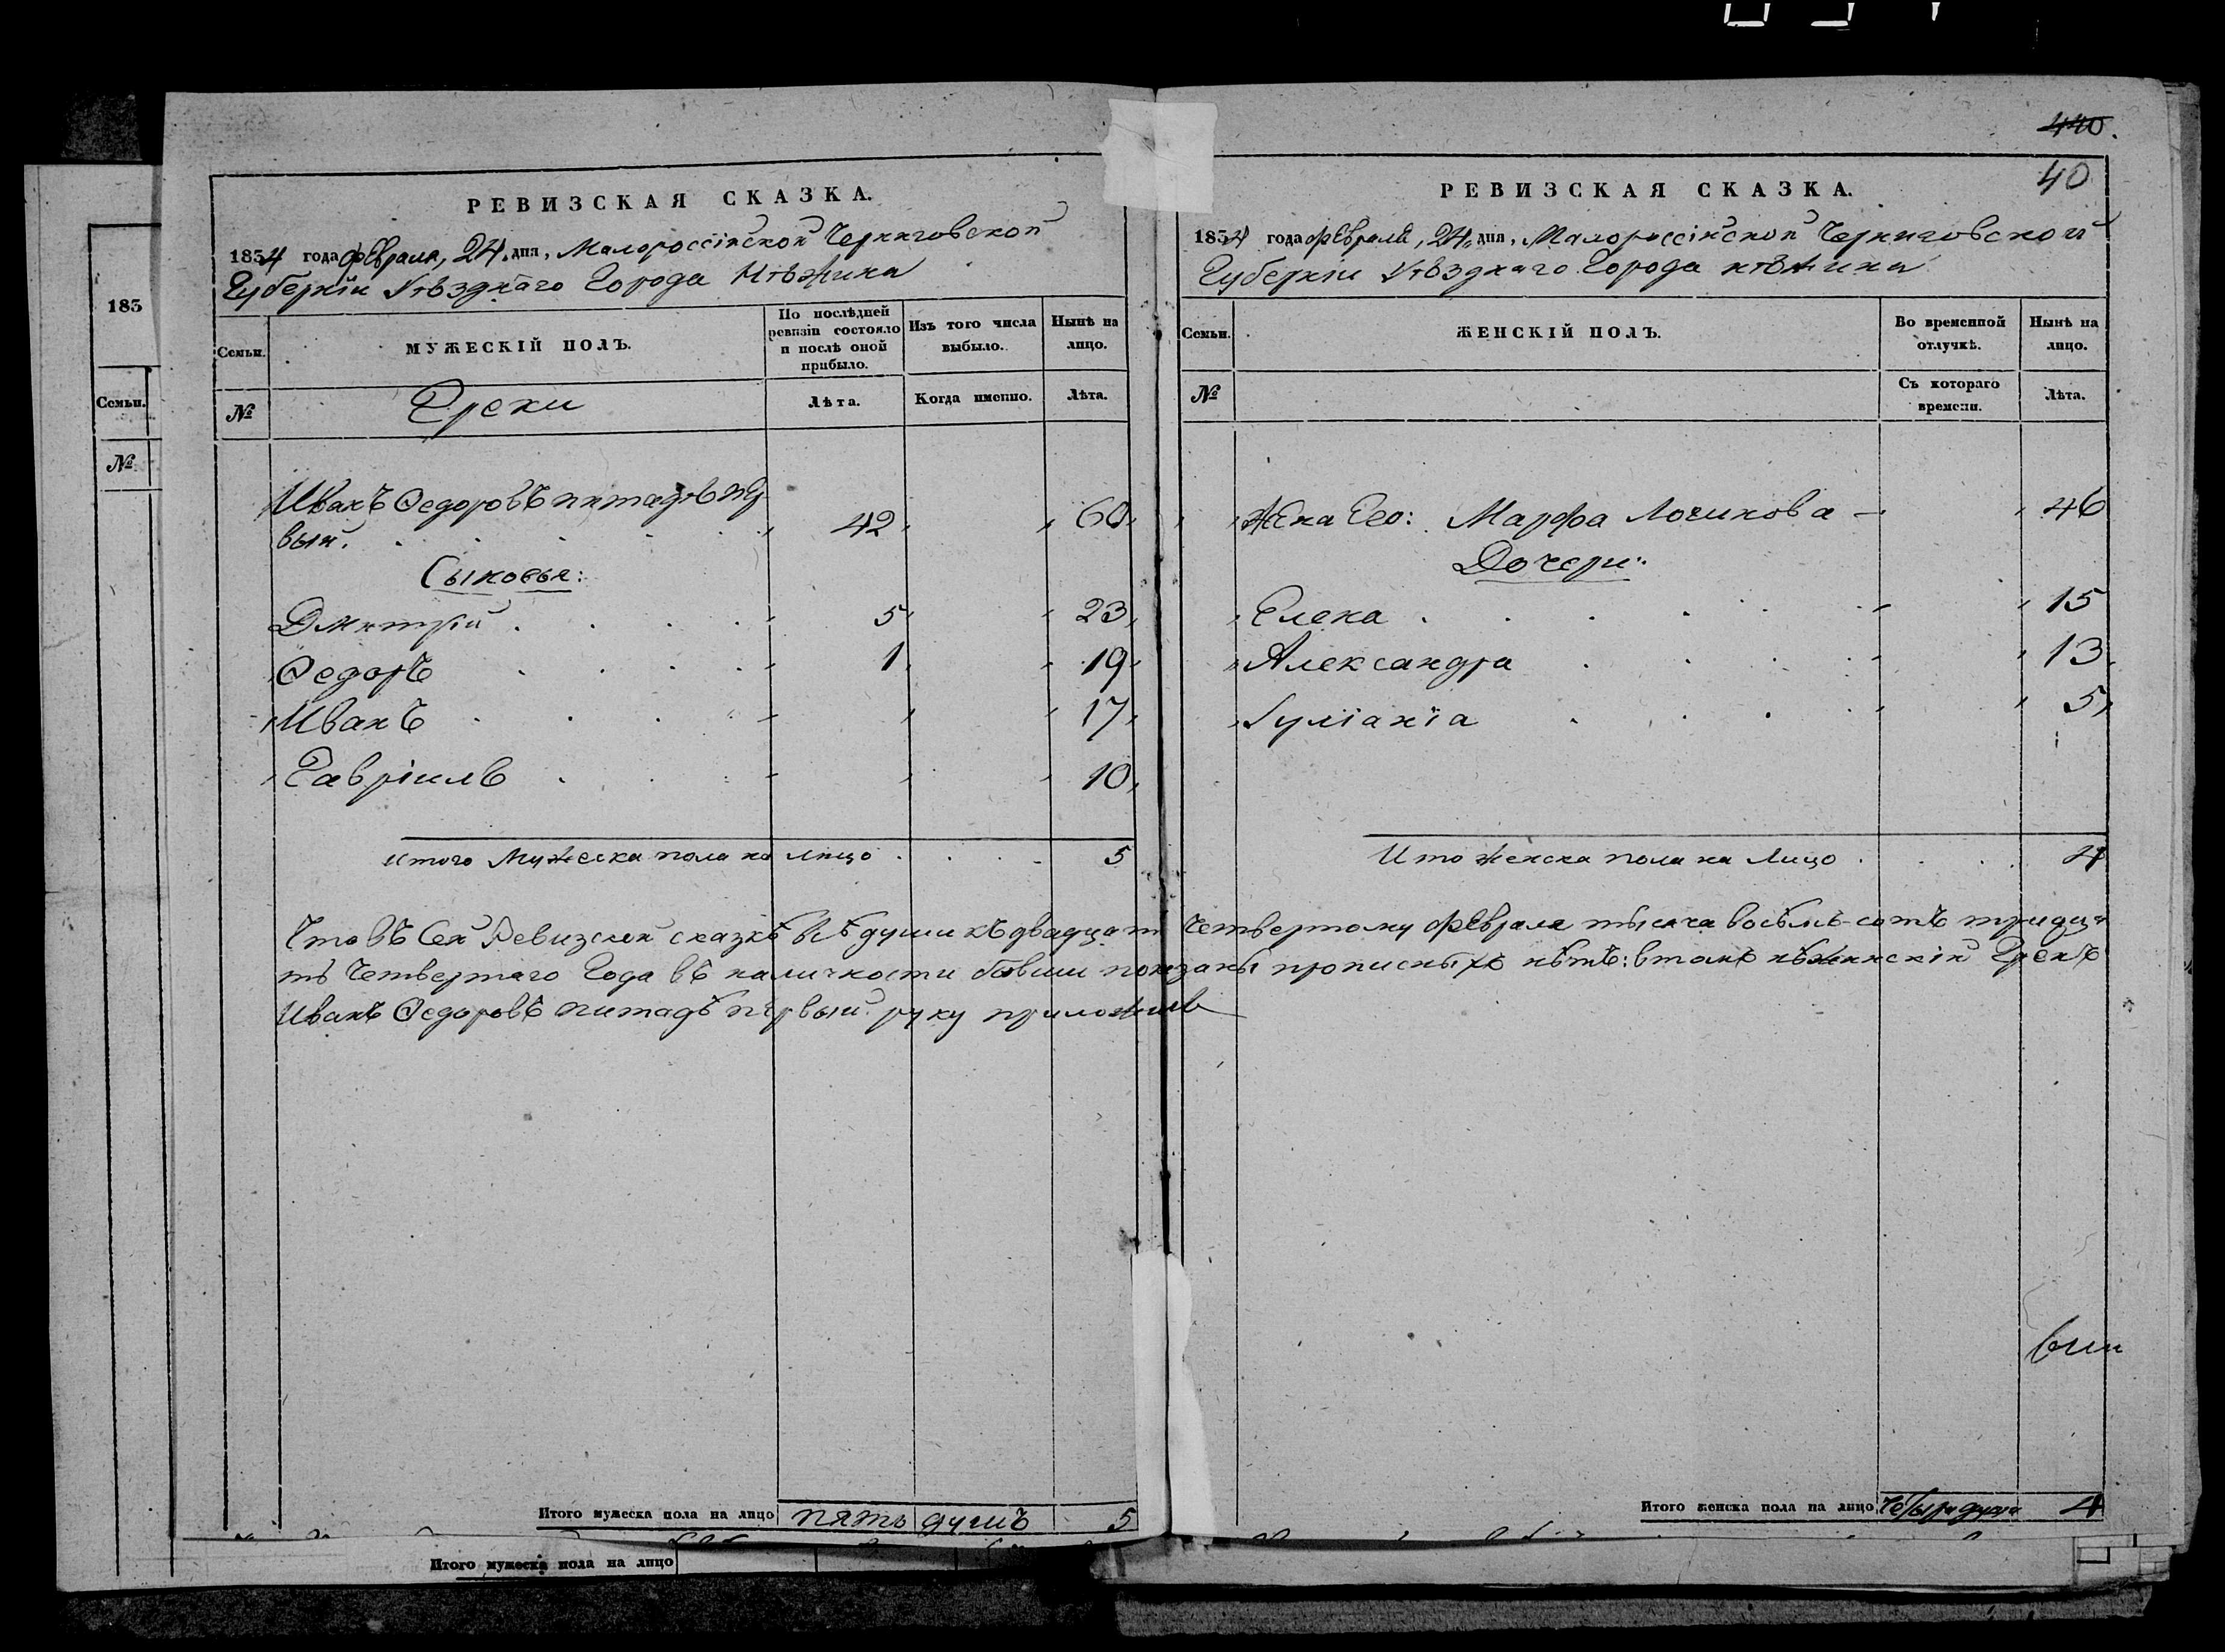 440.
40
РЕВИЗСКАЯ СКАЗКА.
1834 года февраля, 24, дня, Малороссійской Черниговской
Губерніи Уѣзднаго Города Нѣжина
Семьи.
МУЖЕСКІЙ ПОЛЪ.
По послѣдней ревизіи состояло и послѣ оной прибыло.
Изъ того числа выбыло.
Нынѣ на лицо.
№
Греки
Лѣта.
Когда именно.
Лѣта.
Иванъ Федоровъ питадъ пер
вый. 42 60
Сыновья:
Дмитрій 5 23
Федоръ 1 19
Иванъ 17
Гавріилъ 10
итого Мужеска пола на лицо 5
РЕВИЗСКАЯ СКАЗКА.
1834 года февраля, 24, дня, Малороссійской Черниговской
Губерніи Уѣзднаго Города нѣжина
Семьи.
ЖЕНСКІЙ ПОЛЪ.
Во временной отлучкѣ.
Нынѣ на лицо.
№
Съ котораго времени.
Лѣта.
Жена Его: Марфа Логинова 46
Дочери:
Елена 15
Александра 13
Іуліанія 5
Ито женска пола на лицо 4
Что въ Сей Ревизской сказкѣ всѣ души къ двадцати Четвертому февраля тысяча восѣмъ-сотъ тридца
ть Четвертаго Года въ наличности бывши показаны прописныхъ нѣтъ: втомъ нѣжинскій Грекъ
Иванъ Федоровъ питадъ первый руку приложилъ
Итого мужеска пола на лицо пять душъ 5
Итого женска пола на лицо Четыри души 4
183
Семьи.
№
Итого мужеска пола на лицо